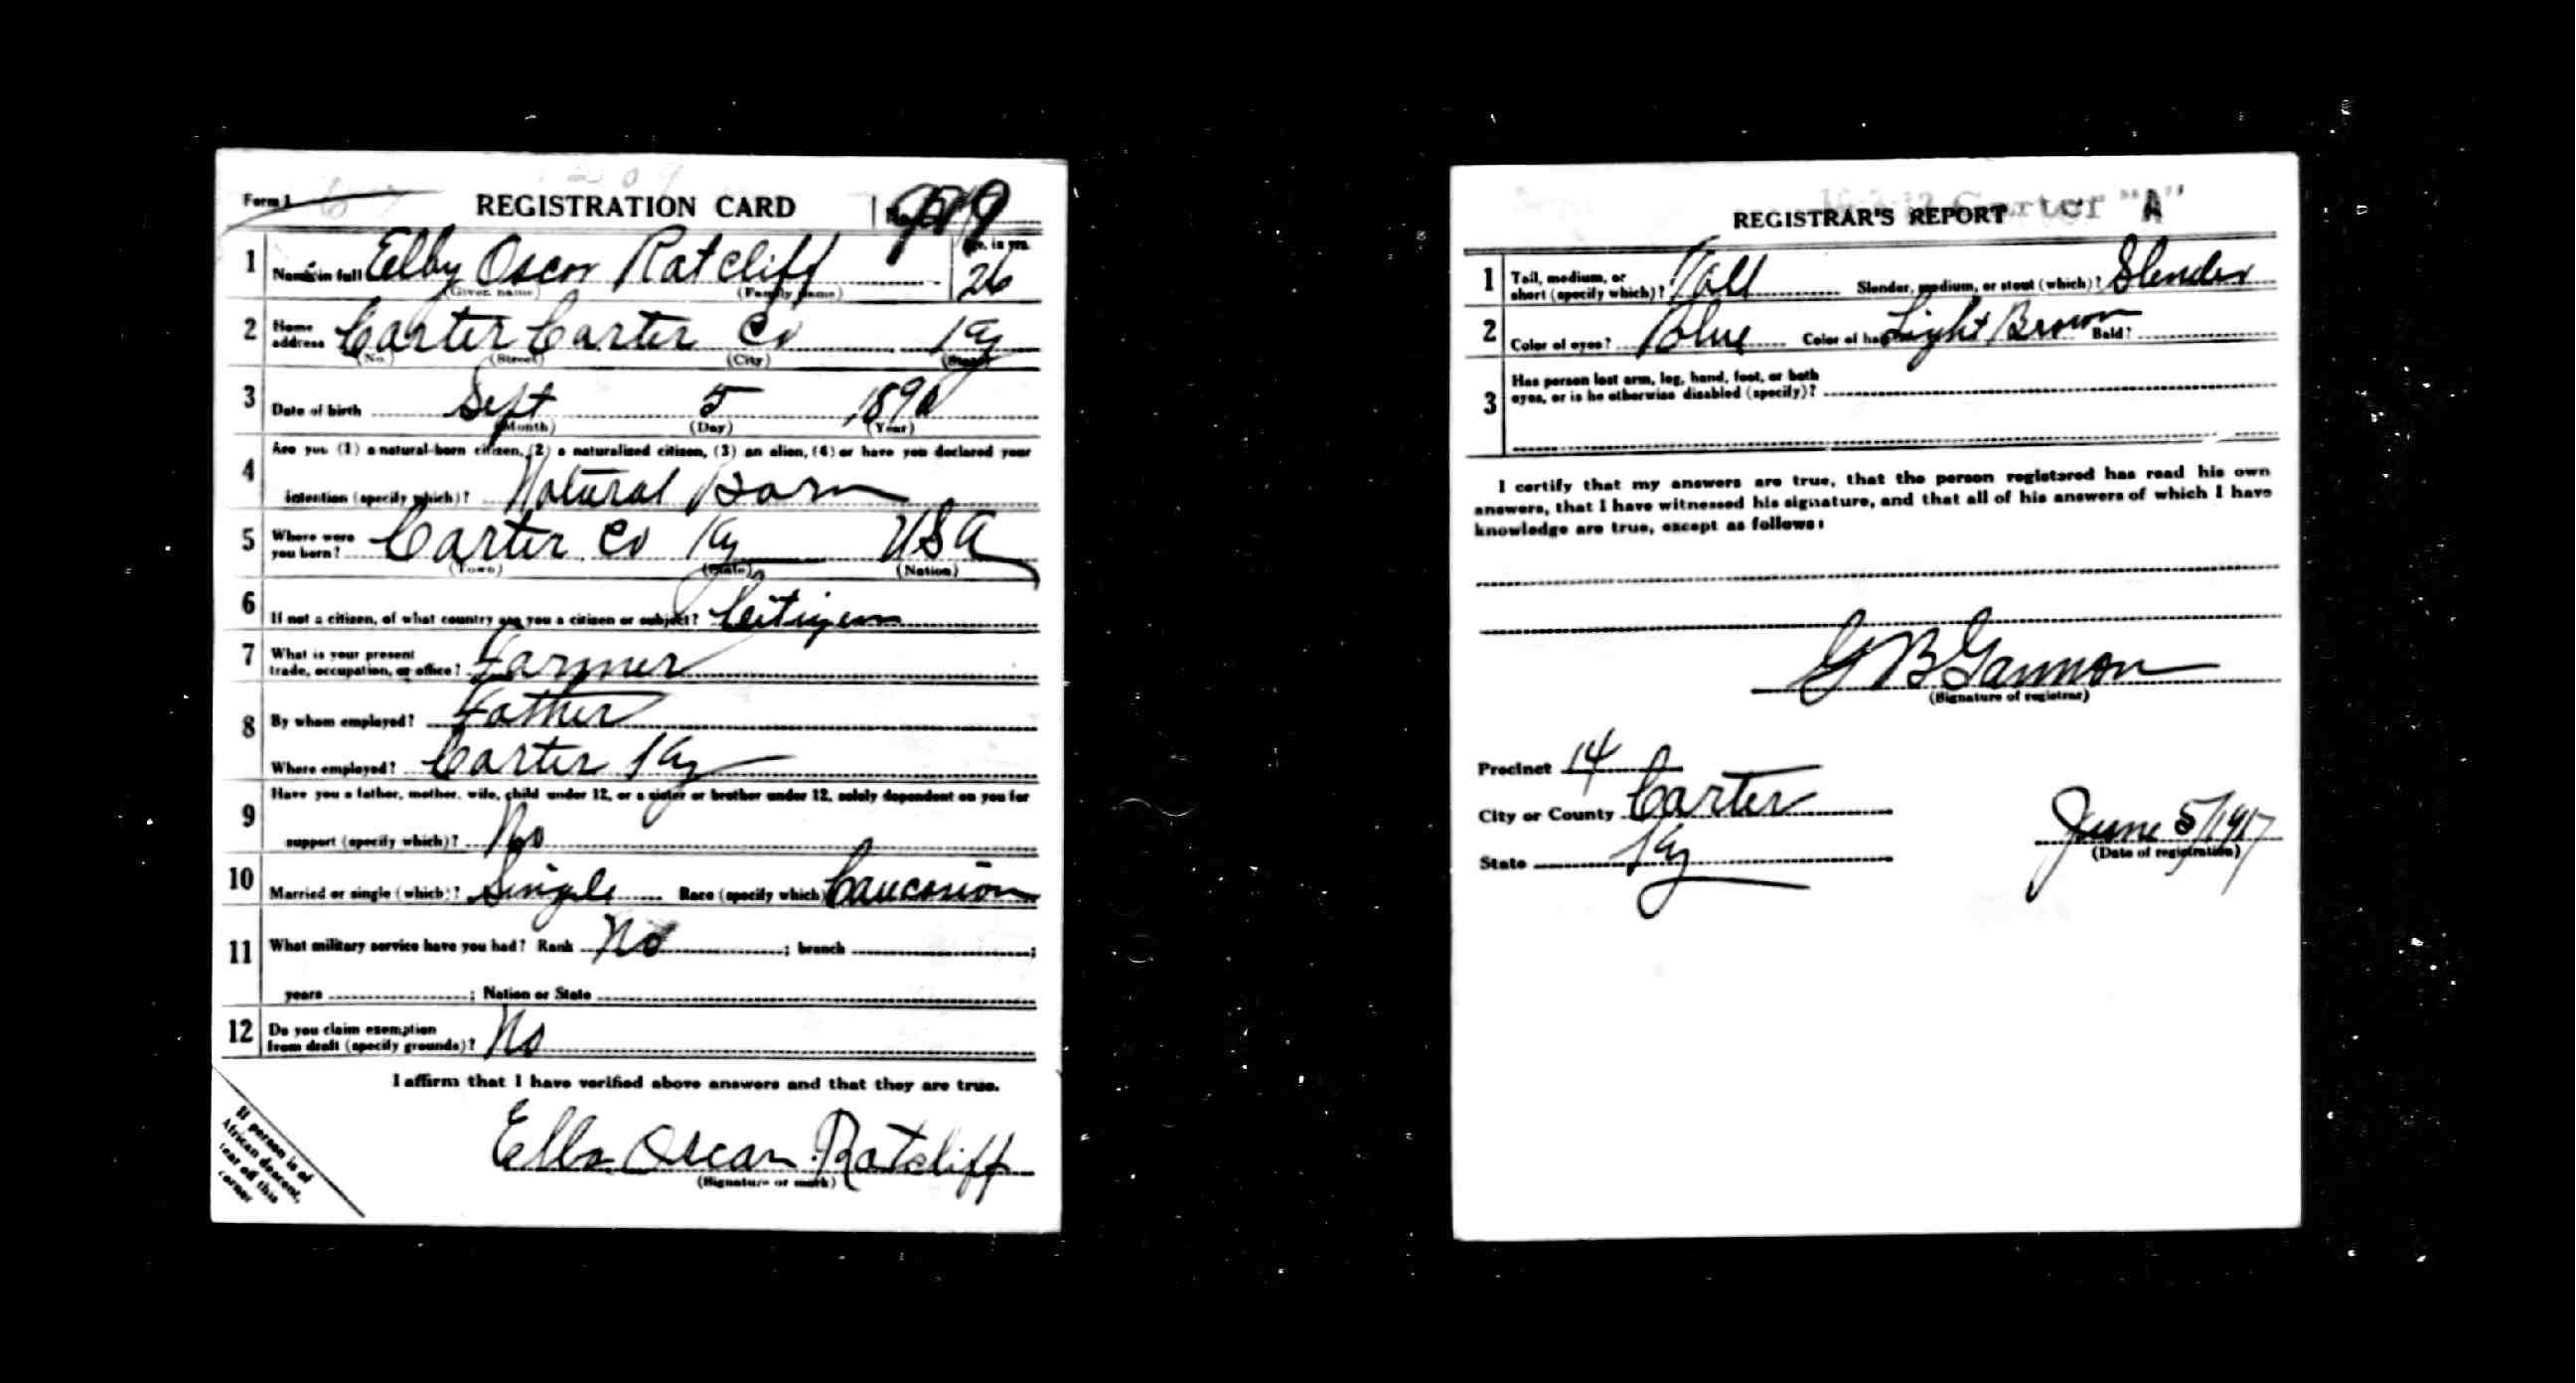 Form 1
REGISTRATION CARD
1 Name in full Elby Oscar Ratcliff Age, in yrs. 26
(Given name) (Family name)
2 Home address Carter Carter Co Ky
(No.) (Street) (City) (State)
3 Date of birth Sept 5 1890
(Month) (Day) (Year)
4 Are you (1) a natural-born citizen, (2) a naturalized citizen, (3) an alien, (4) or have you declared your
intention (specify which)? Natural Born
5 Where were you born? Carter Co Ky USA
(Town) (State) (Nation)
6 If not a citizen, of what country are you a citizen or subject? Citizen
7 What is your present
trade, occupation, or office? Farmer
8 By whom employed? Father
Where employed? Carter Ky
9 Have you a father, mother, wife, child under 12, or a sister or brother under 12, solely dependent on you for
support (specify which)? No
10 Married or single (which)? Single Race (specify which) Caucasian
11 What military service have you had? Rank No ; branch ;
years ; Nation or State
12 Do you claim exemption
from draft (specify grounds)? No
I affirm that I have verified above answers and that they are true.
Oscar Ratcliff
(Signature or mark)
If person is of
African descent,
tear off this
corner
Carter "A"
REGISTRAR'S REPORT
1 Tall, medium, or
short (specify which)? Tall Slender, medium, or stout (which)? Slender
2 Color of eyes? Blue Color of hair Light Brown Bald?
3 Has person lost arm, leg, hand, foot, or both
eyes, or is he otherwise disabled (specify)?
I certify that my answers are true, that the person registered has read his own
answers, that I have witnessed his signature, and that all of his answers of which I have
knowledge are true, except as follows:
G B Gannon
(Signature of registrar)
Precinct 14
City or County Carter
State Ky
June 5/1917
(Date of registration)